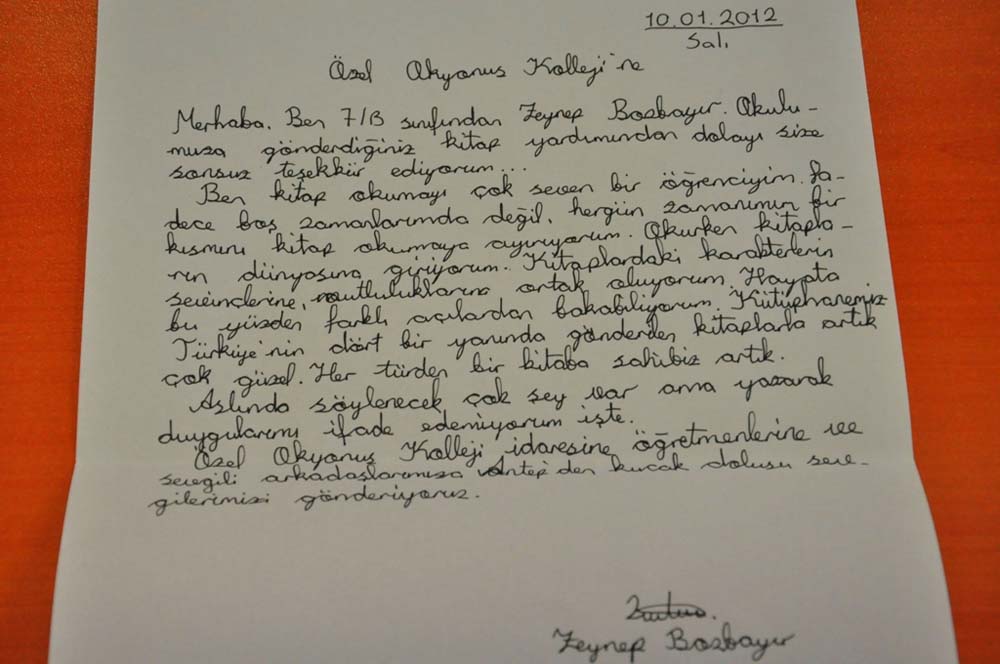 10.01.2012
Salı
Özel Okyanus Kolleji'ne
Merhaba. Ben 7/B sınıfından Zeynep Bozbayır. Okulu-
muza gönderdiğiniz kitap yardımından dolayı size
sonsuz teşekkür ediyorum...
Ben kitap okumayı çok seven bir öğrenciyim. Sa-
dece boş zamanlarımda değil, hergün zamanımın bir
kısmını kitap okumaya ayırıyorum. Okurken kitapla-
rın dünyasına giriyorum. Kitaplardaki karakterlerin
sevinçlerine, mutluluklarına ortak oluyorum. Hayata
bu yüzden farklı açılardan bakabiliyorum. Kütüphanemiz
Türkiye'nin dört bir yanında gönderilen kitaplarla artık
çok güzel. Her türden bir kitaba sahibiz artık.
Aslında söylenecek çok şey var ama yazarak
duygularımı ifade edemiyorum işte.
Özel Okyanus Kolleji idaresine öğretmenlerine ve
sevgili arkadaşlarımıza Antep'den kucak dolusu sev-
gilerimizi gönderiyoruz.
Zeynep Bozbayır